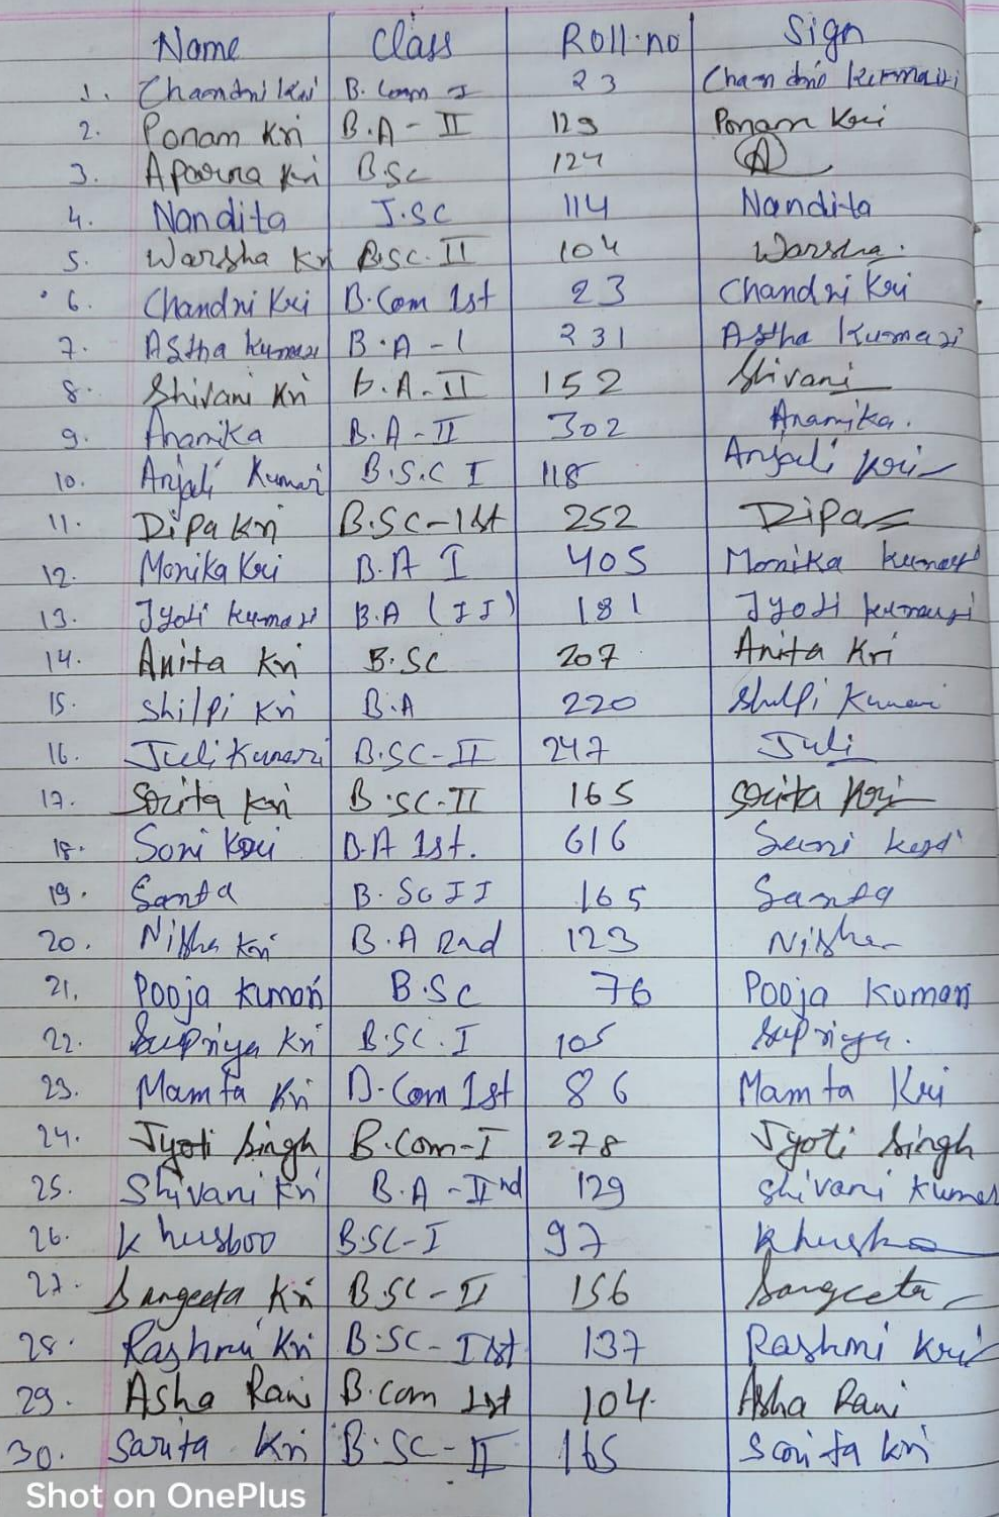 Name Class Roll.no Sign
1. Chandni Kri B. Com I 23 Chandni Kumari
2. Ponam Kri B.A - II 129 Ponam Kri
3. Aparna Kri B.Sc 124 A
4. Nandita I.SC 114 Nandita
5. Warsha Kri B.SC. II 104 Warsha.
6. Chandni Kri B.Com 1st 23 Chandni Kri
7. Astha Kumari B.A - I 231 Astha Kumari
8. Shivani Kri B.A - II 152 Shivani
9. Anamika B.A - II 302 Anamika.
10. Anjali Kumari B.S.C I 118 Anjali Kri
11. Dipa Kri B.SC-1st 252 Dipa
12. Monika Kri B.A I 405 Monika Kumari
13. Jyoti Kumari B.A (II) 181 Jyoti Kumari
14. Anita Kri B.SC 207 Anita Kri
15. Shilpi Kri B.A 220 Shilpi Kumari
16. Juli Kumari B.SC-II 247 Juli
17. Sarita Kri B.SC-II 165 Sarita Kri
18. Soni Kri B.A 1st. 616 Soni Kri
19. B. Sc II 165
20. Nisha Kri B.A 2nd 123 Nisha
21. Pooja Kumari B.SC 76 Pooja Kumari
22. Supriya Kri B.SC. I 105 Supriya.
23. Mamta Kri B.Com 1st 86 Mamta Kri
24. Jyoti Singh B.Com-I 278 Jyoti Singh
25. Shivani Kri B.A - IInd 129 Shivani Kumari
26. Khusboo B.SC-I 97
27. Sangeeta Kri B.SC-II 156 Sangeeta
28. Rashmi Kri B.SC-Ist 137 Rashmi Kri
29. Asha Rani B.com 1st 104. Asha Rani
30. Sarita Kri B.SC-II 165 Sarita Kri
Shot on OnePlus